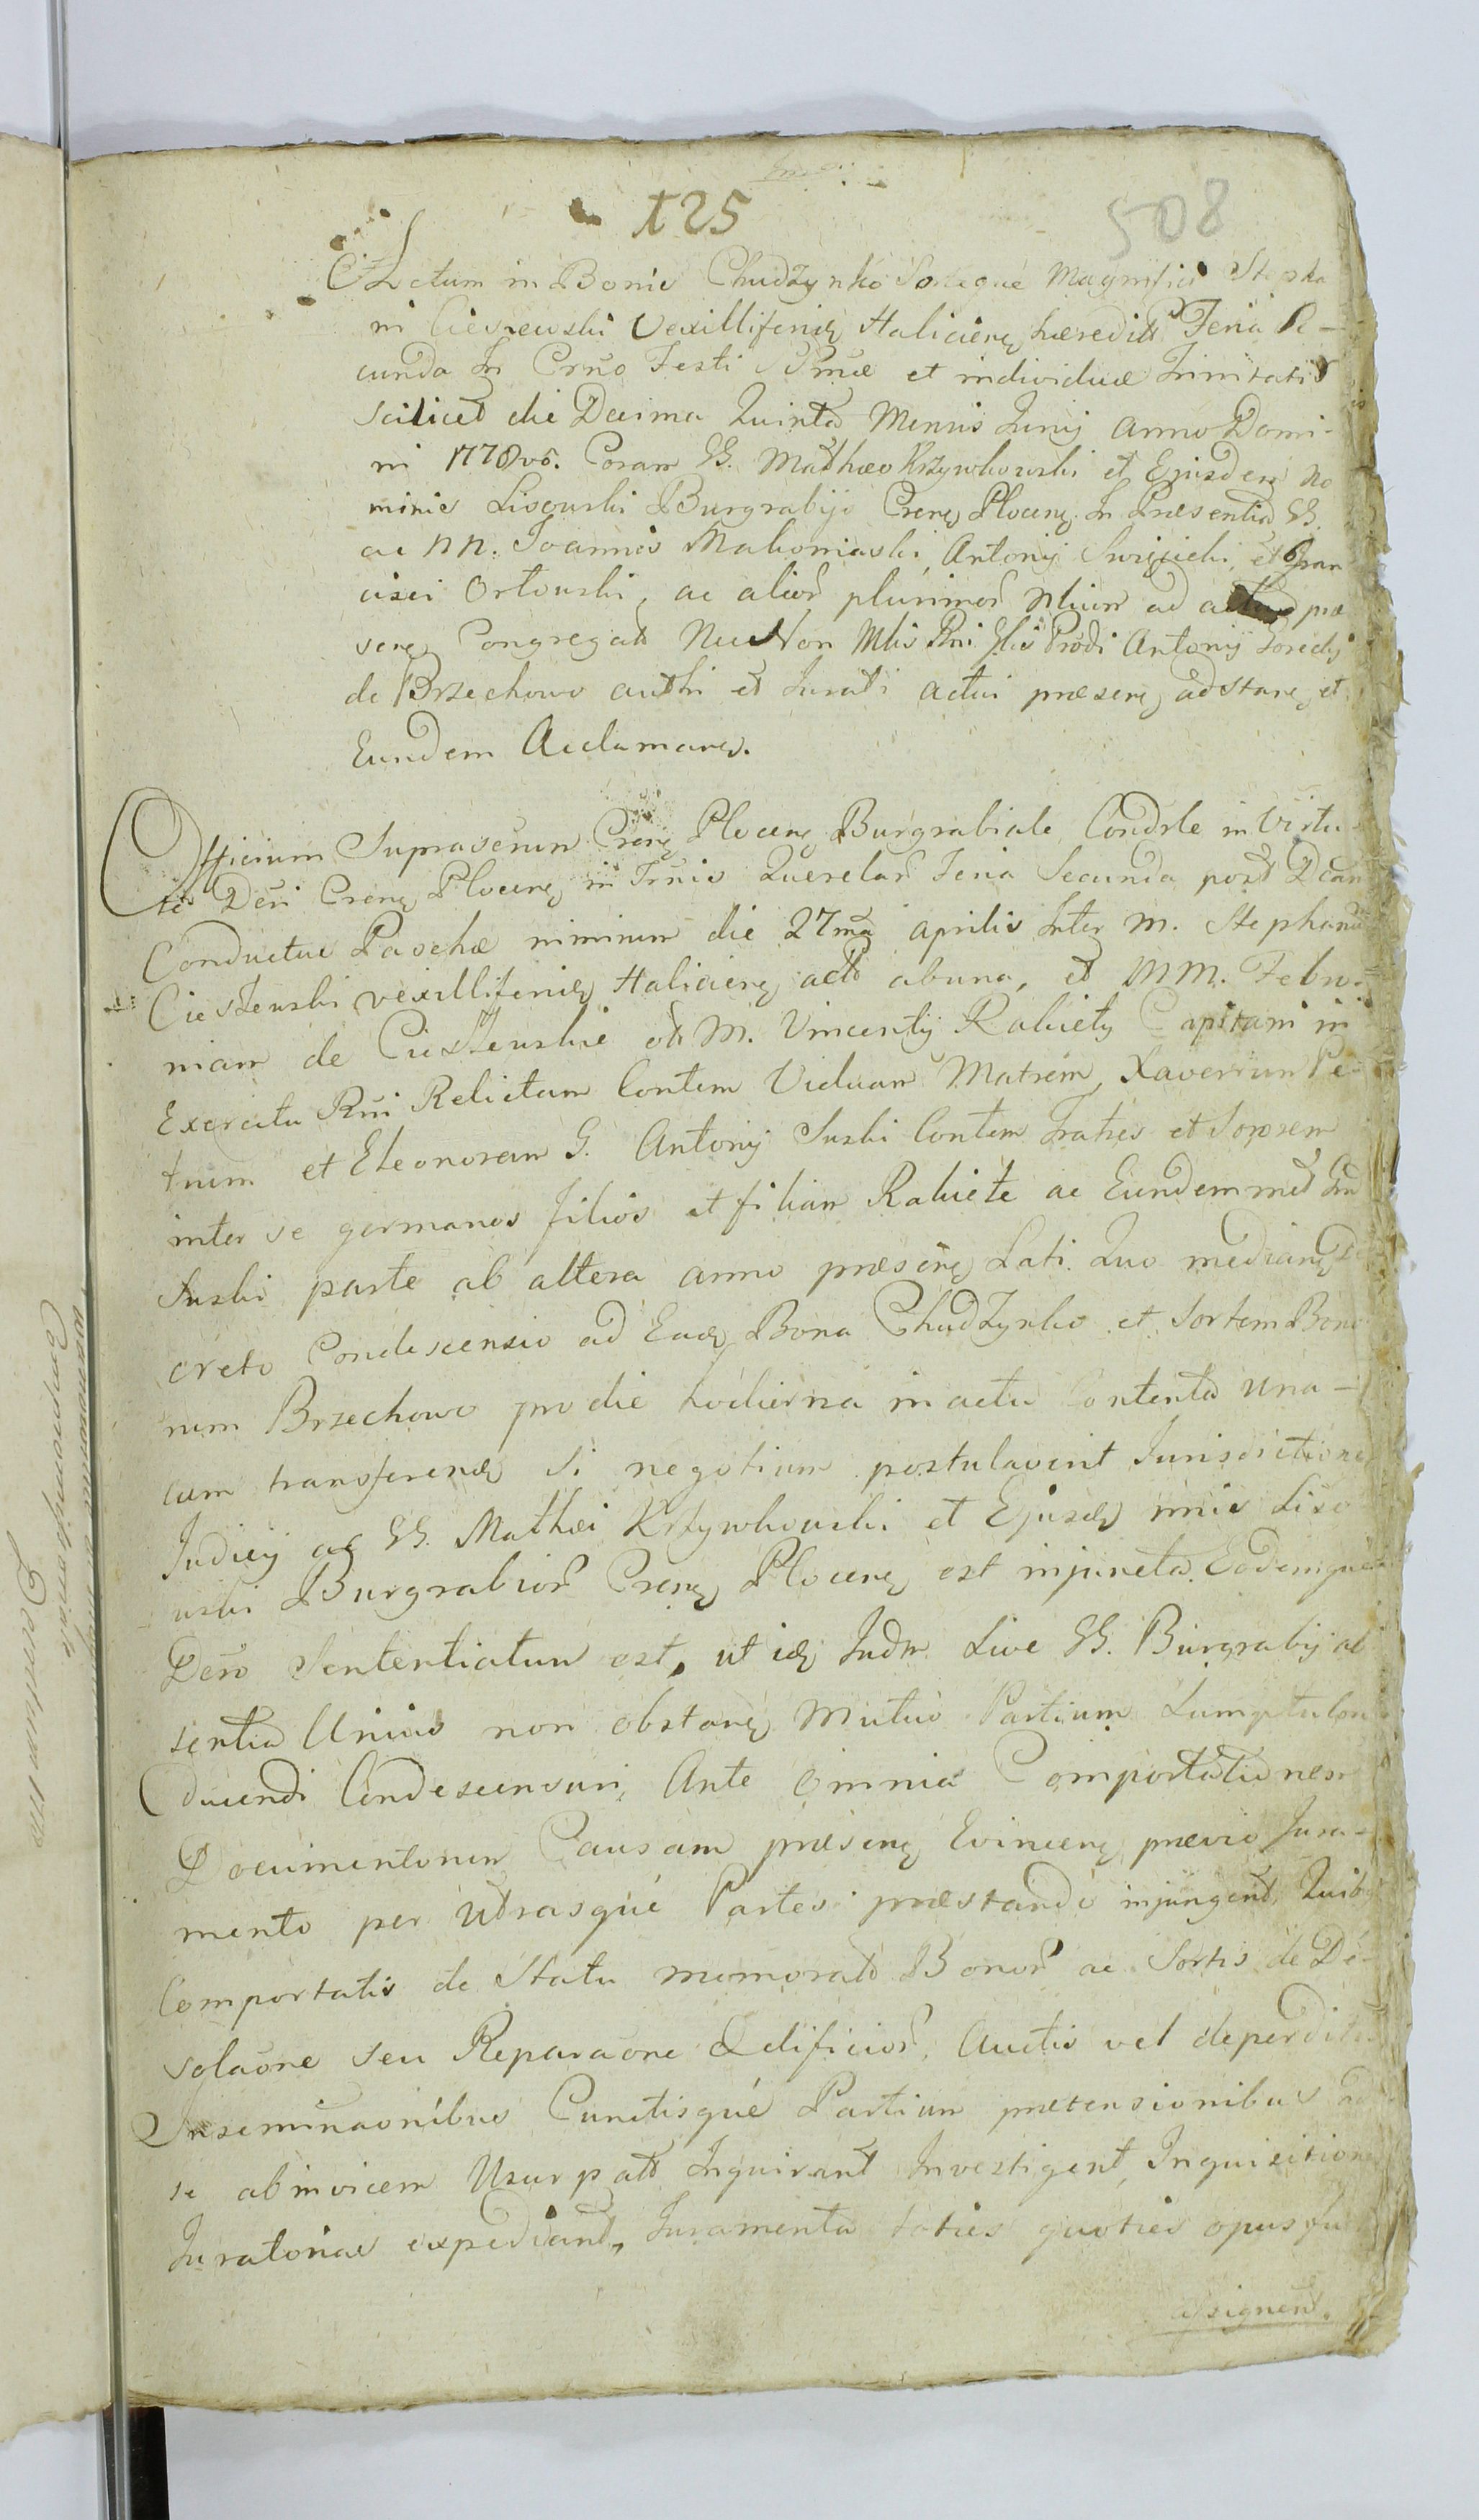 125
508
Actum in Bonis Chudzynko Sorteque Magnifici Stepha
ni Cieszewski Vexilliferidę Haliciens hæredit Feria Se-
cunda In Crno Festi SSmæ et individuæ Trinitatis
scilicet die Decima Quinta Mensis Junij Anno Domi-
ni 1778vo. Coram GG. Mathæo Krzywkowski et Ejusdem no
minis Lisowski Burgrabijs Crens Plocens. In Præsentia GG.
ac NN. Joannis Makomaski, Antonij Swięcicki, et Fran
cisci Orłowski, ac alior plurimor Nlium ad actum præ
sens Congregat Nec Non Mlis Rni Glis Prodi Antonij
de Brzechowo authi et Jurati actui præsens adstans et
Eundem Acclamans.
Officium Suprascrun Crens Plocens Burgrabiale Condsle in Virtu-
te Dcri Crens Plocens in Trnis Querelar Feria Secunda post Dcam
Conductus Paschæ nimirum die 27ma Aprilis Inter M. Stephanu
Cieszewski vexilliferidę Haliciens act abuna, et MM. Febro-
niam de Cieszewskie M. Vincentij Rabiety Capitani in
Exercitu Rni Relictam Contem Viduam Matrem, Xaverium Pe-
trum et Eleonoram G. Antonij Suski Contem Fratres et Sororem
inter se germanos filios et filiam Rabiete ac Eundemmet Ant
Suski parte ab altera anno præsens Lati. Quo medians De
creto Condescensio ad Eadę Bona Chudzynko et Sortem Bono
rum Brzechowo pro die hodierna in actu Contenta una-
cum transferendę si negotium postulaverit Jurisdictione
Judicij ac GG. Mathæi Krzywkowski et Ejusdę mnis Liso
wski Burgrabior Crens Plocens est injuncta. Eodemque
Dcro Sententiatum est, ut idę Judm sive GG. Burgrabij ab
sentia Unius non obstans Mutuo Partium Sumptu Con
ducendi Condescensuri, Ante omnia Comportationem
Documentorum Causam præsens Evincens prævio Jura-
mento per Utrasque Partes præstando injungent, Quib
Comportatis de Statu memorat Bonor ac Sortis de De-
solaone seu Reparaone Ædificior, Auctis vel deperditis
Inseminaonibus Cunctisque Partium prætensionibus ad
se abinvicem Usurpat Inquirant Investigent, Inquisitiones
Juratorias expediant, Juramenta toties quoties opus fu
assignent.